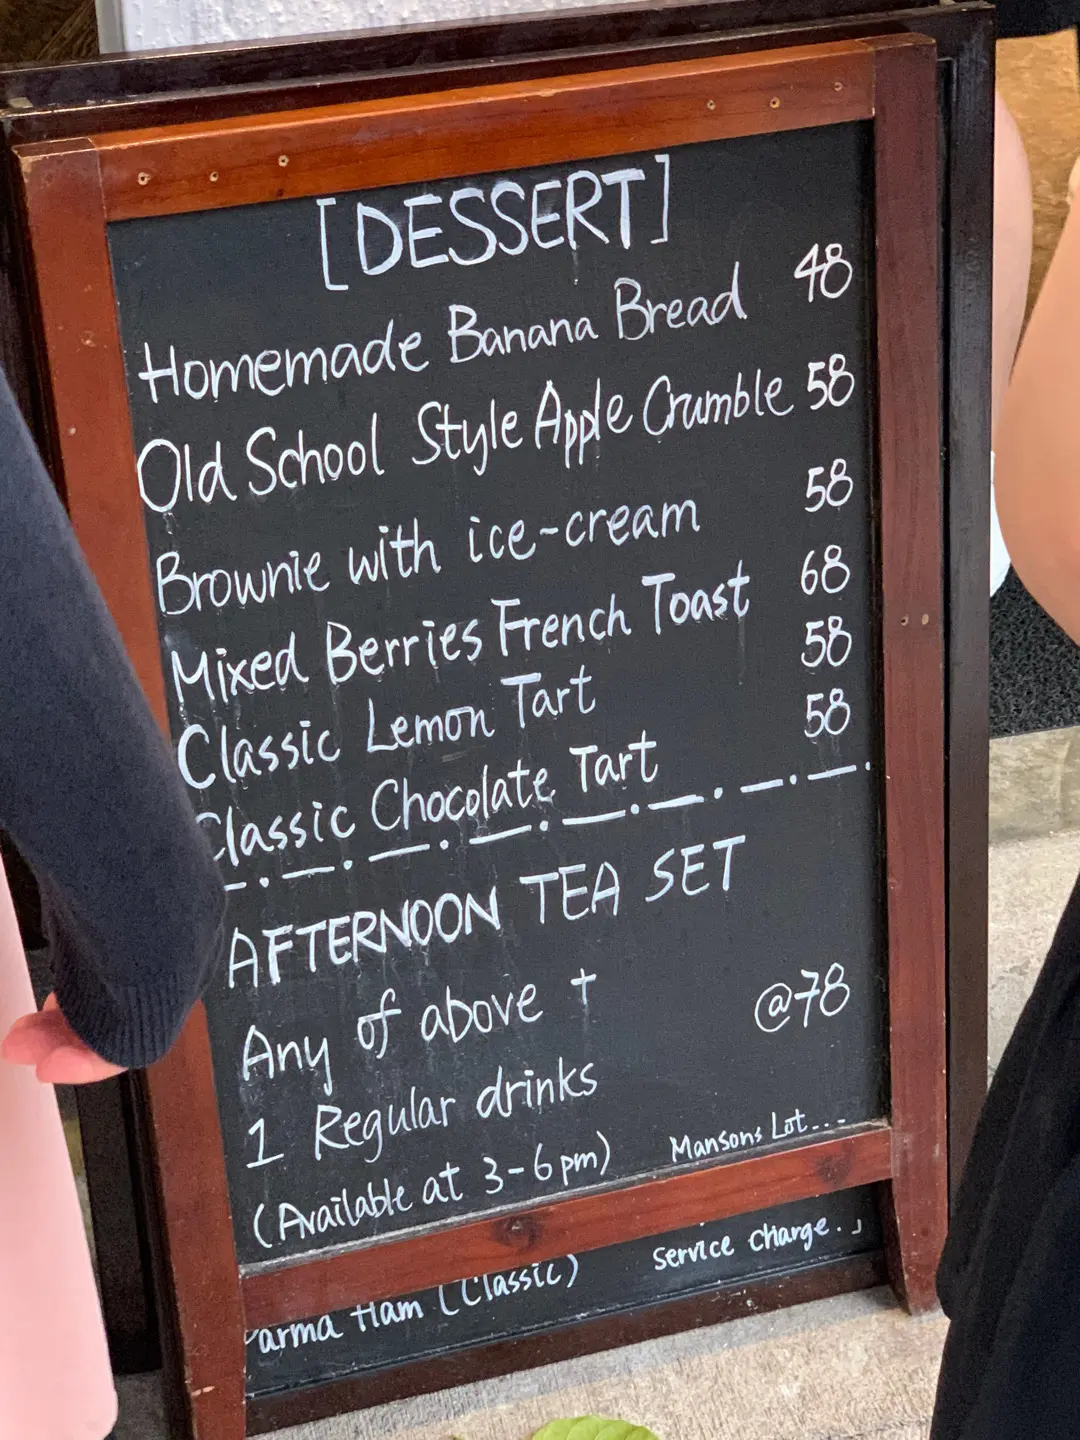 [DESSERT]
Homemade Banana Bread 48
Old School Style Apple Crumble 58
Brownie with ice-cream 58
Mixed Berries French Toast 68
Classic Lemon Tart 58
Classic Chocolate Tart 58
AFTERNOON TEA SET
Any of above +
@78
1 Regular drinks
(Available at 3-6pm) Mansons Lot...
Service Charge.
Parma Ham (Classic)